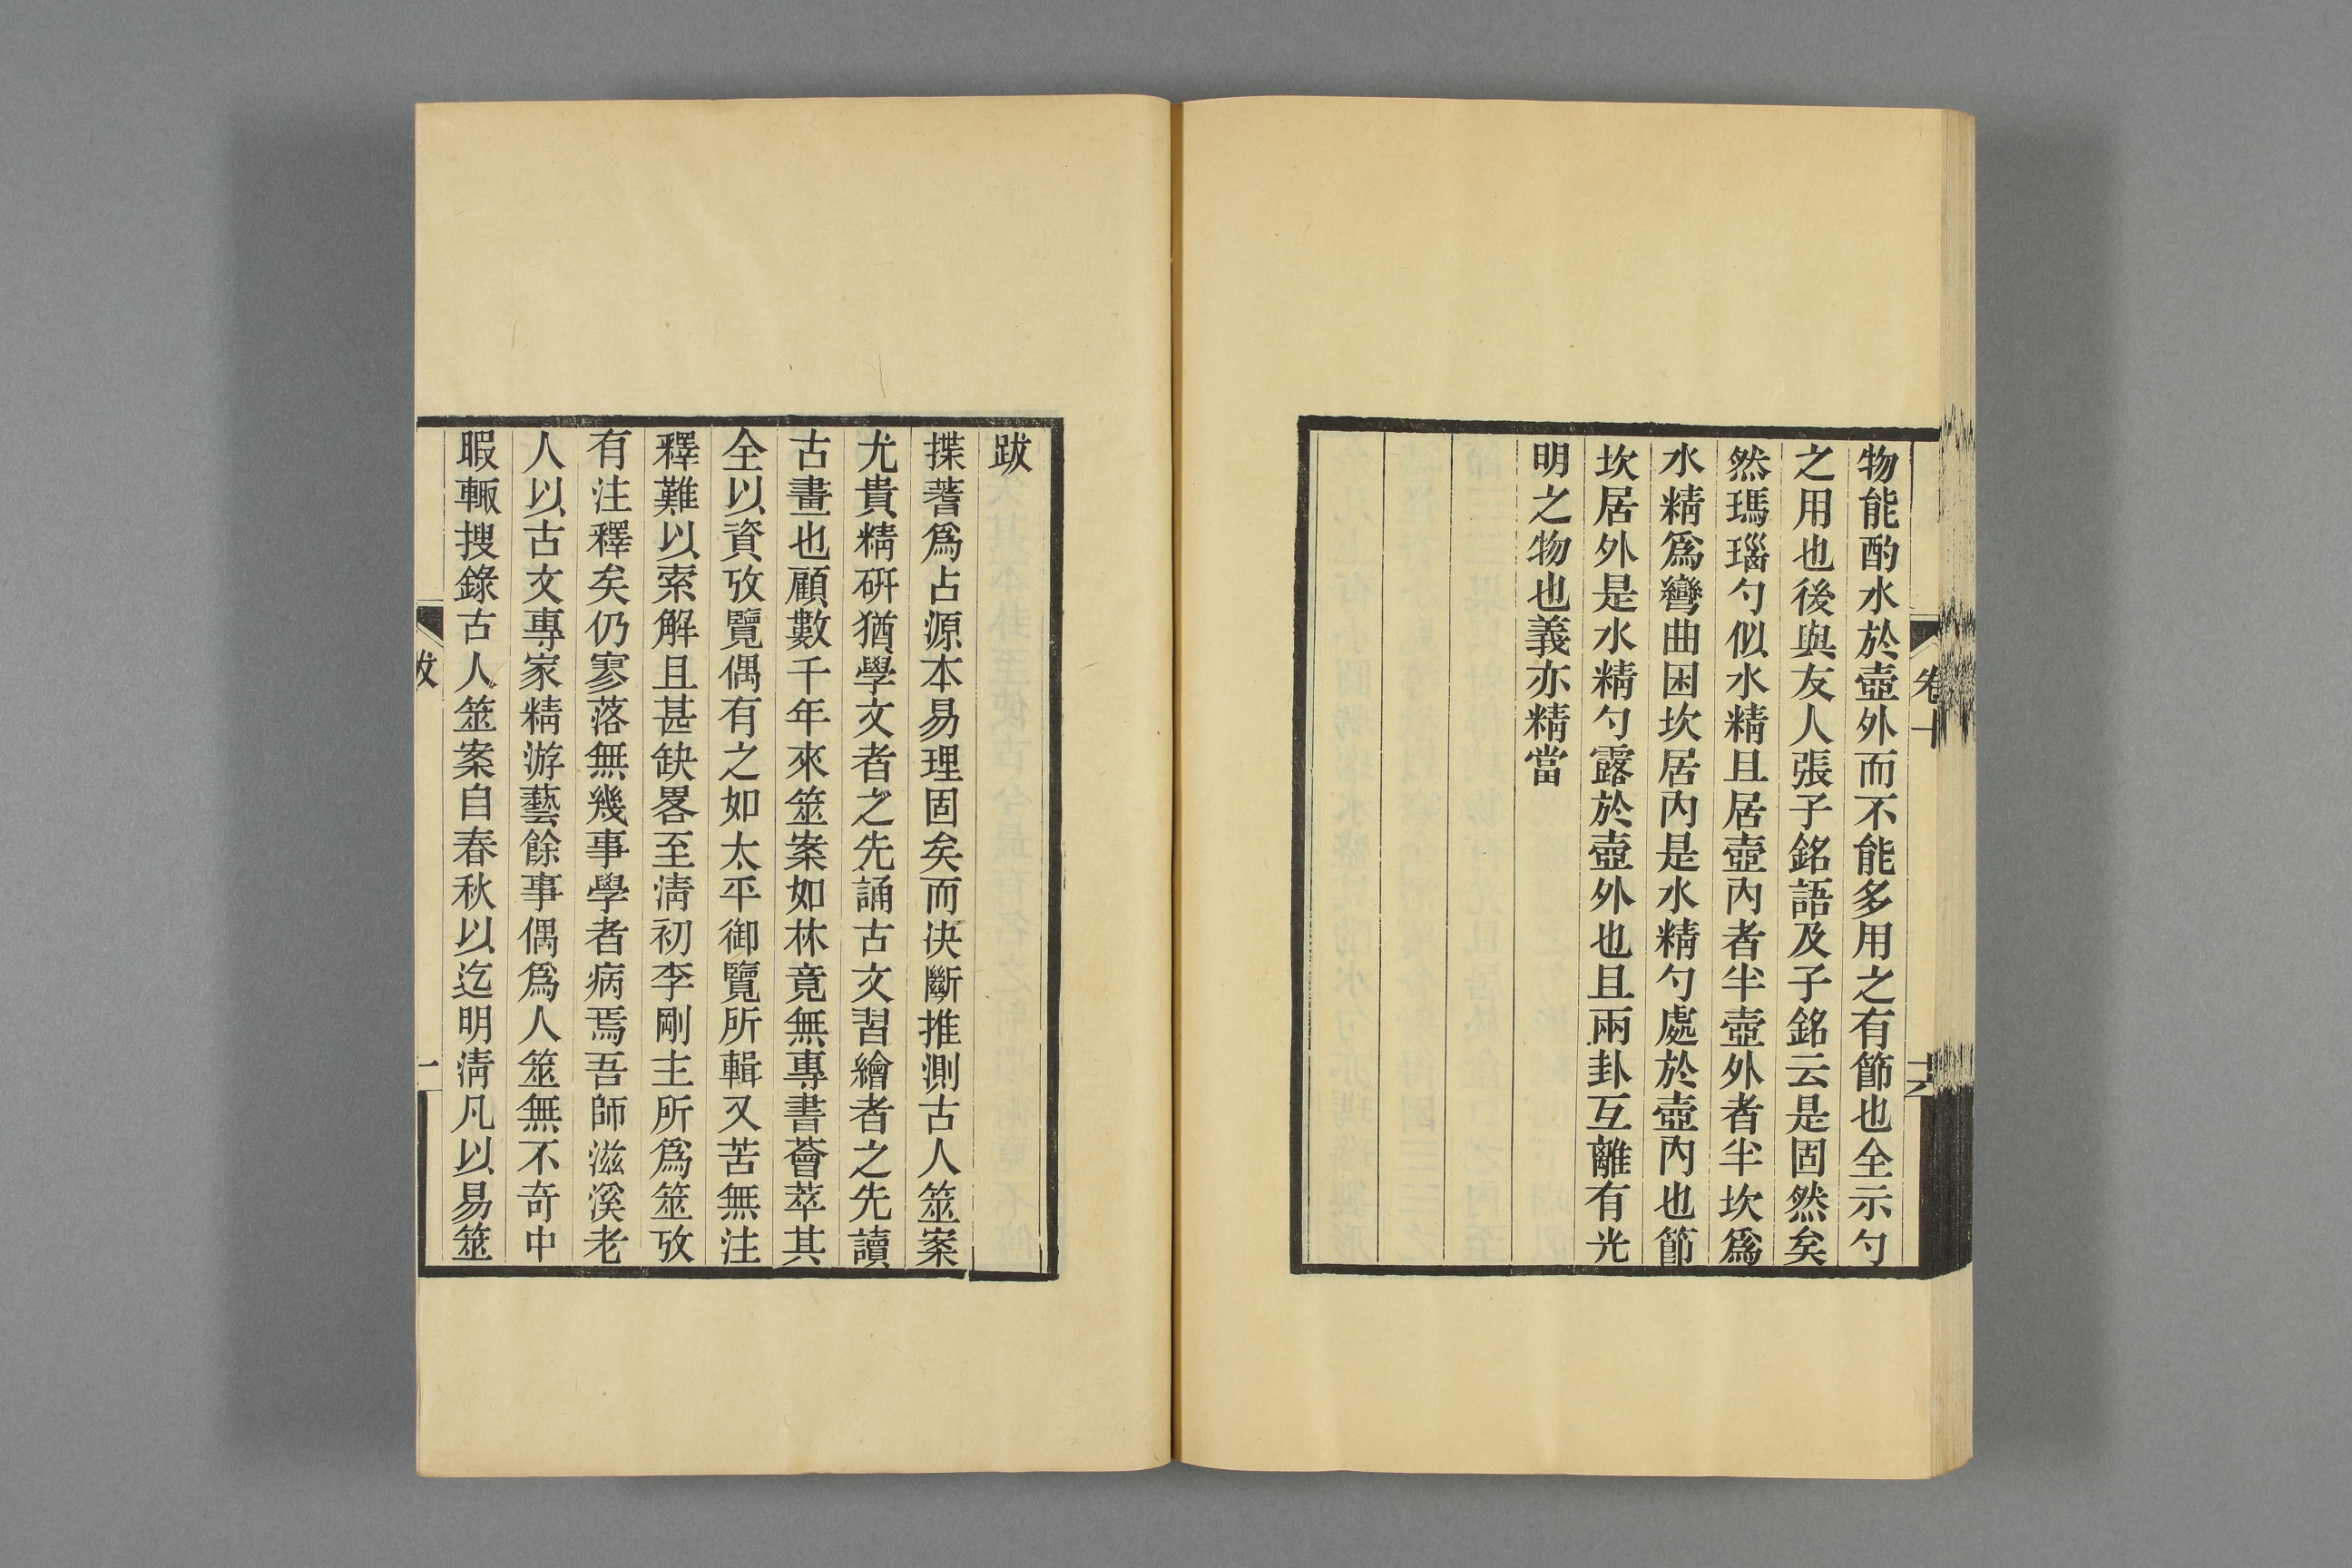 卷十
十六
物能酌水於壺外而不能多用之有節也全示勺
之用也後與友人張子銘語及子銘云是固然矣
然瑪瑙勺似水精且居壺內者半壺外者半坎爲
水精爲彎曲困坎居內是水精勺處於壺內也節
坎居外是水精勺露於壺外也且兩卦互離有光
明之物也義亦精當
跋
揲蓍爲占源本易理固矣而決斷推測古人筮案
尤貴精硏猶學文者之先誦古文習繪者之先讀
古畫也顧數千年來筮案如林竟無專書薈萃其
全以資攷覽偶有之如太平御覽所輯又苦無注
釋難以索解且甚缺畧至淸初李剛主所爲筮攷
有注釋矣仍寥落無幾事學者病焉吾師滋溪老
人以古文專家精游藝餘事偶爲人筮無不奇中
暇輙搜錄古人筮案自春秋以迄明淸凡以易筮
一